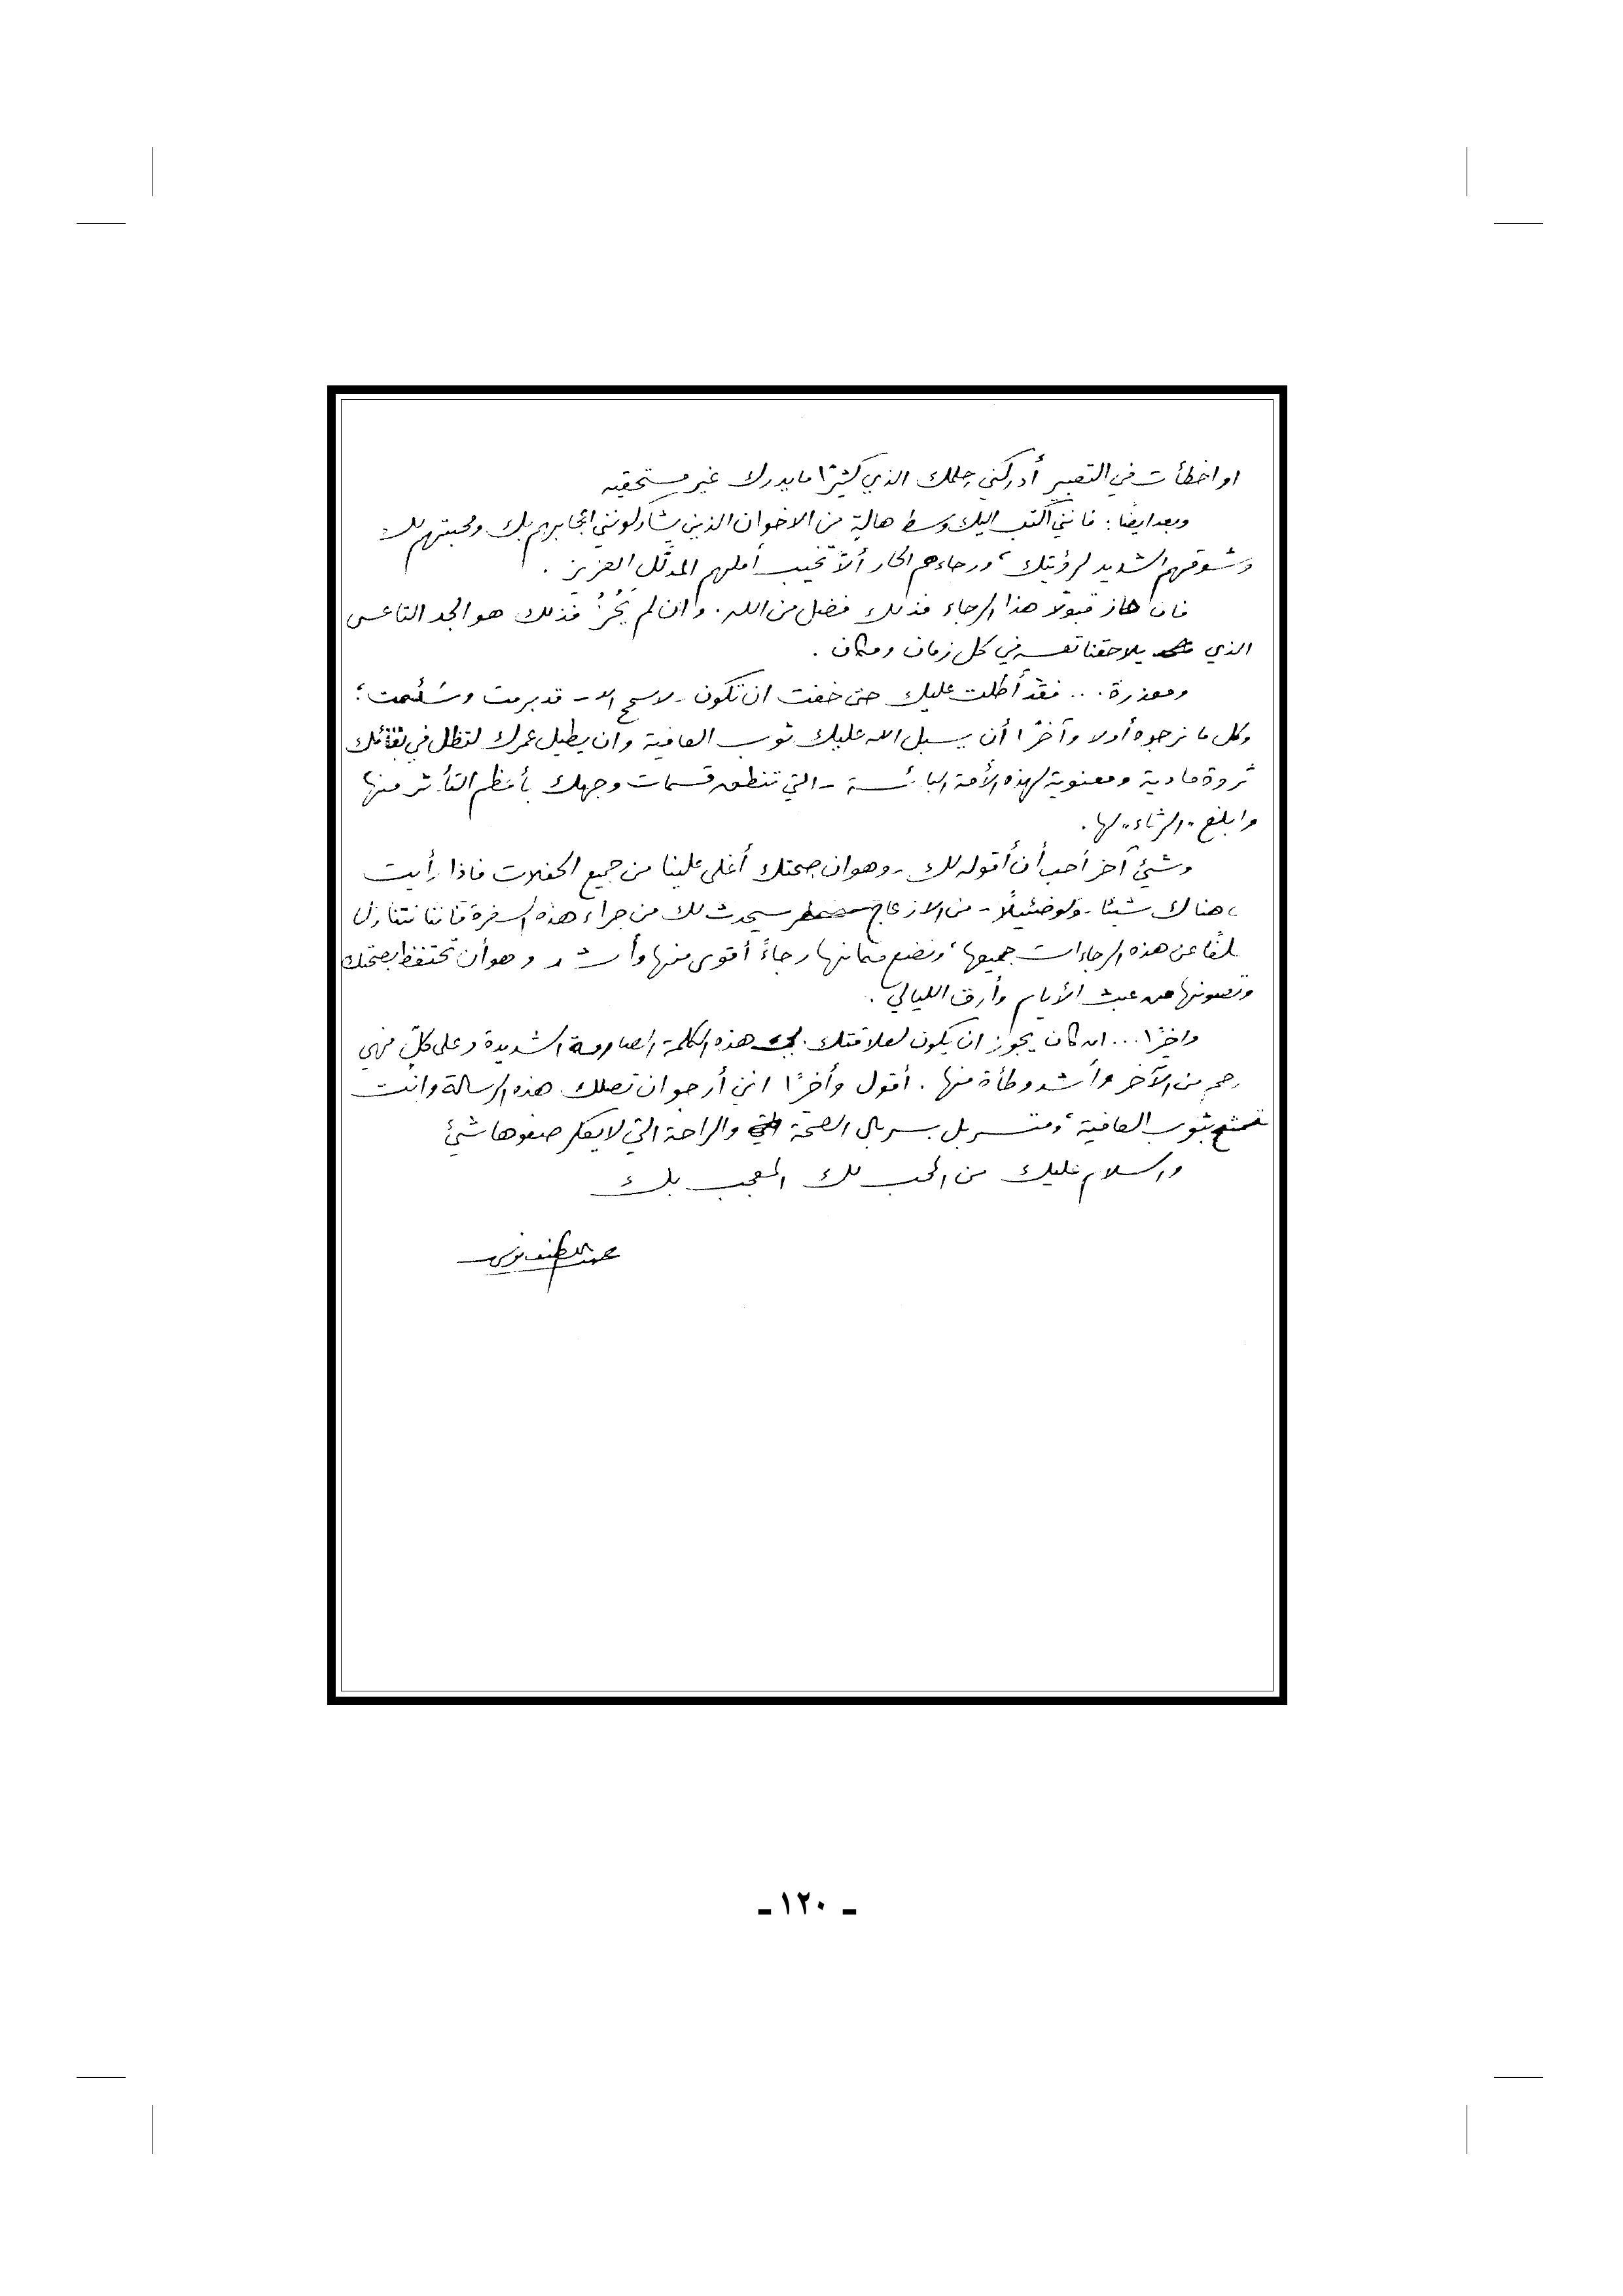 او اخطأت في التعبير أدركني حلمك الذي كثيرًا ما يدرك غير مستحقيه
وبعد ايضًا: فانني أكتب اليك وسط هالة من الاخوان الذين يشاركونني اعجابهم بك ومحبتهم لك
وشوقهم الشديد لرؤيتك، ورجاءهم الحار ألاّ تخيب أملهم المدلّل العزيز.
فان حاز قبولا هذا الرجاء فذلك فضل من الله. وان لم يَحُزْ فذلك هو الجد التاعس
الذي يلاحقنا نفسه في كل زمان ومكان.
ومعذرة... فقد أطلت عليك حتى خفت ان تكون - لا سمح الله - قد برمت وسَئمت؛
وكل ما نرجوه أولا وآخرًا أن يسبل الله عليك ثوب العافية وان يطيل عمرك لتظل في بقائك
ثروة مادية ومعنوية لهذه الأمة البائسة - التي تنطق قسمات وجهك بأعظم التأثر منها
وابلغ "الرثاء" لها.
وشيئ آخر أحب أن أقوله لك - وهو ان صحتك أغلى علينا من جميع الحفلات فاذا رأيت
هناك شيئا - ولو ضئيلاً - من الازعاج سيحدث لك من جراء هذه السفرة فاننا نتنازل
سلفًا عن هذه الرجاءات جميعها، ونضع مكانها رجاءً أقوى منها وأشد وهو أن تحتفظ بصحتك
وتصونها من عبث الأيام وأرق الليالي.
واخيرًا... ان كان يجوز ان يكون لعلاقتك بي هذه الكلمة الصارمة الشديدة وعلى كلٍّ فهي
ارحم من الآخر وأشد وطأة منها. أقول وأخيرًا انني أرجو ان تصلك هذه الرسالة وانت
تتمتع بثوب العافية، ومتسربل بسربال الصحة والراحة التي لا يعكر صفوها شيئ
والسلام عليك من المحب لك المعجب بك
ـ ١٢٠ ـ